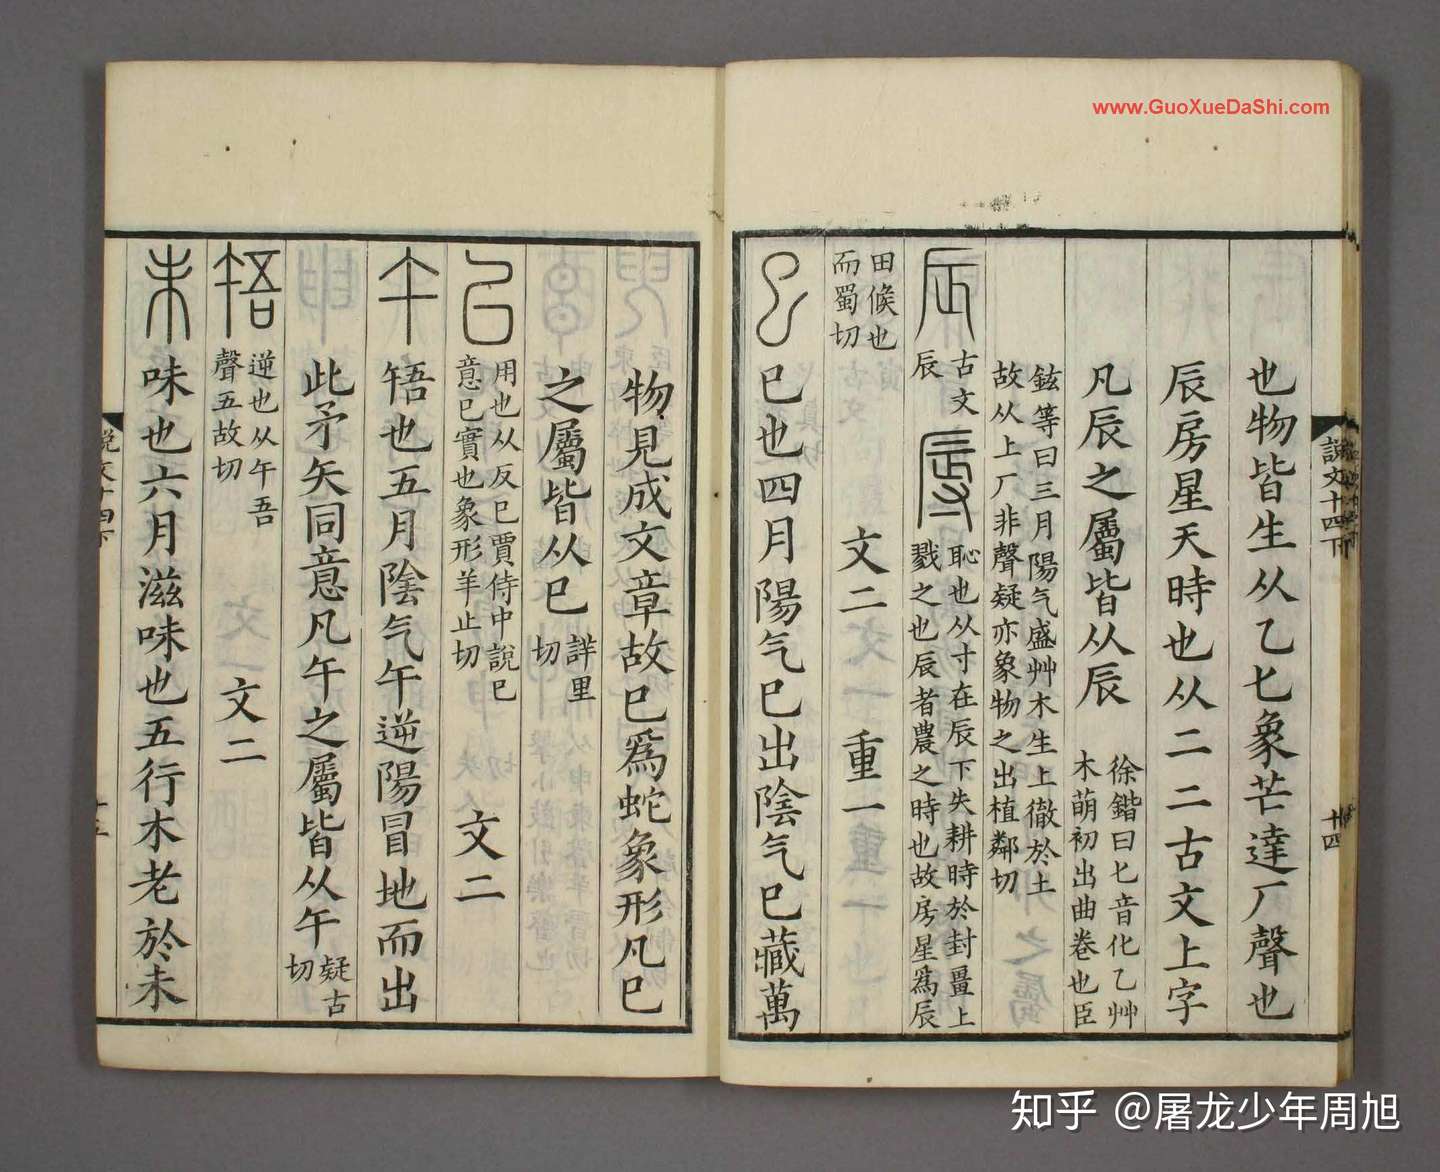 www.GuoXueDaShi.com
說文十四下
十四
也物皆生从乙匕象芒達厂聲也
辰房星天時也从二二古文上字
凡辰之屬皆从辰
徐鍇曰匕音化乙艸
木萌初出曲卷也臣
鉉等曰三月陽气盛艸木生上徹於土
故从上厂非聲疑亦象物之出植鄰切
辰
古文
辰
辱
恥也从寸在辰下失耕時於封畺上
戮之也辰者農之時也故房星爲辰
田候也
而蜀切
文二 重一
巳
巳也四月陽气巳出陰气巳藏萬
物見成文章故巳爲蛇象形凡巳
之屬皆从巳
詳里
切
㠯
用也从反巳賈侍中說巳
意巳實也象形羊止切
文二
午
啎也五月陰气午逆陽冒地而出
此予矢同意凡午之屬皆从午
疑古
切
啎
逆也从午吾
聲五故切
文二
未
味也六月滋味也五行木老於未
說文十四下
十五
知乎 @屠龙少年周旭